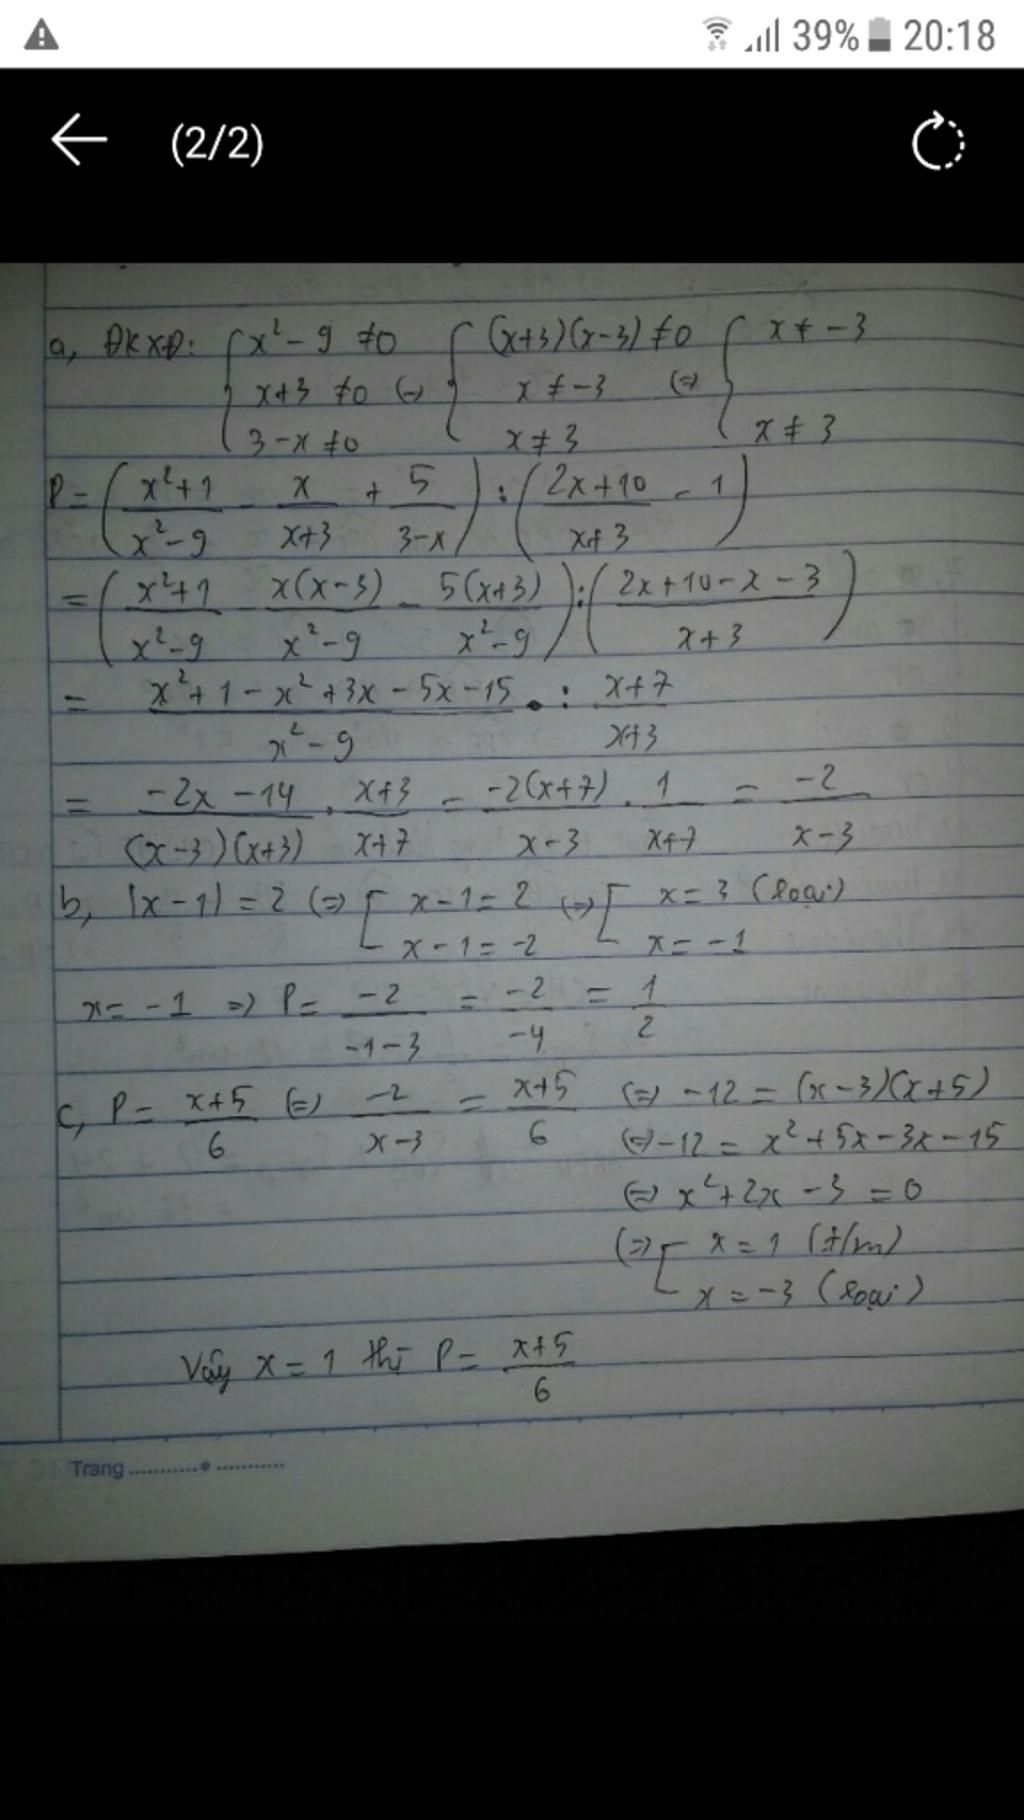 39% 20:18
(2/2)
a, ĐKXĐ: { x² - 9 ≠ 0 ; x+3 ≠ 0 ; 3-x ≠ 0 (=) { (x+3)(x-3) ≠ 0 ; x ≠ -3 ; x ≠ 3 (=) { x ≠ -3 ; x ≠ 3
P = ( (x²+1)/(x²-9) - x/(x+3) + 5/(3-x) ) : ( (2x+10)/(x+3) - 1 )
= ( (x²+1)/(x²-9) - x(x-3)/(x²-9) - 5(x+3)/(x²-9) ) : ( (2x+10-x-3)/(x+3) )
= (x²+1-x²+3x-5x-15)/(x²-9) : (x+7)/(x+3)
= (-2x-14)/((x-3)(x+3)) . (x+3)/(x+7) = -2(x+7)/(x-3) . 1/(x+7) = -2/(x-3)
b, |x-1| = 2 (=) [ x-1 = 2 ; x-1 = -2 (=) [ x = 3 (loại) ; x = -1
x = -1 => P = -2/(-1-3) = -2/-4 = 1/2
c, P = (x+5)/6 (=) -2/(x-3) = (x+5)/6 (=) -12 = (x-3)(x+5)
(=) -12 = x²+5x-3x-15
(=) x²+2x-3 = 0
(=) [ x = 1 (t/m)
x = -3 (loại)
Vậy x = 1 thì P = (x+5)/6
Trang